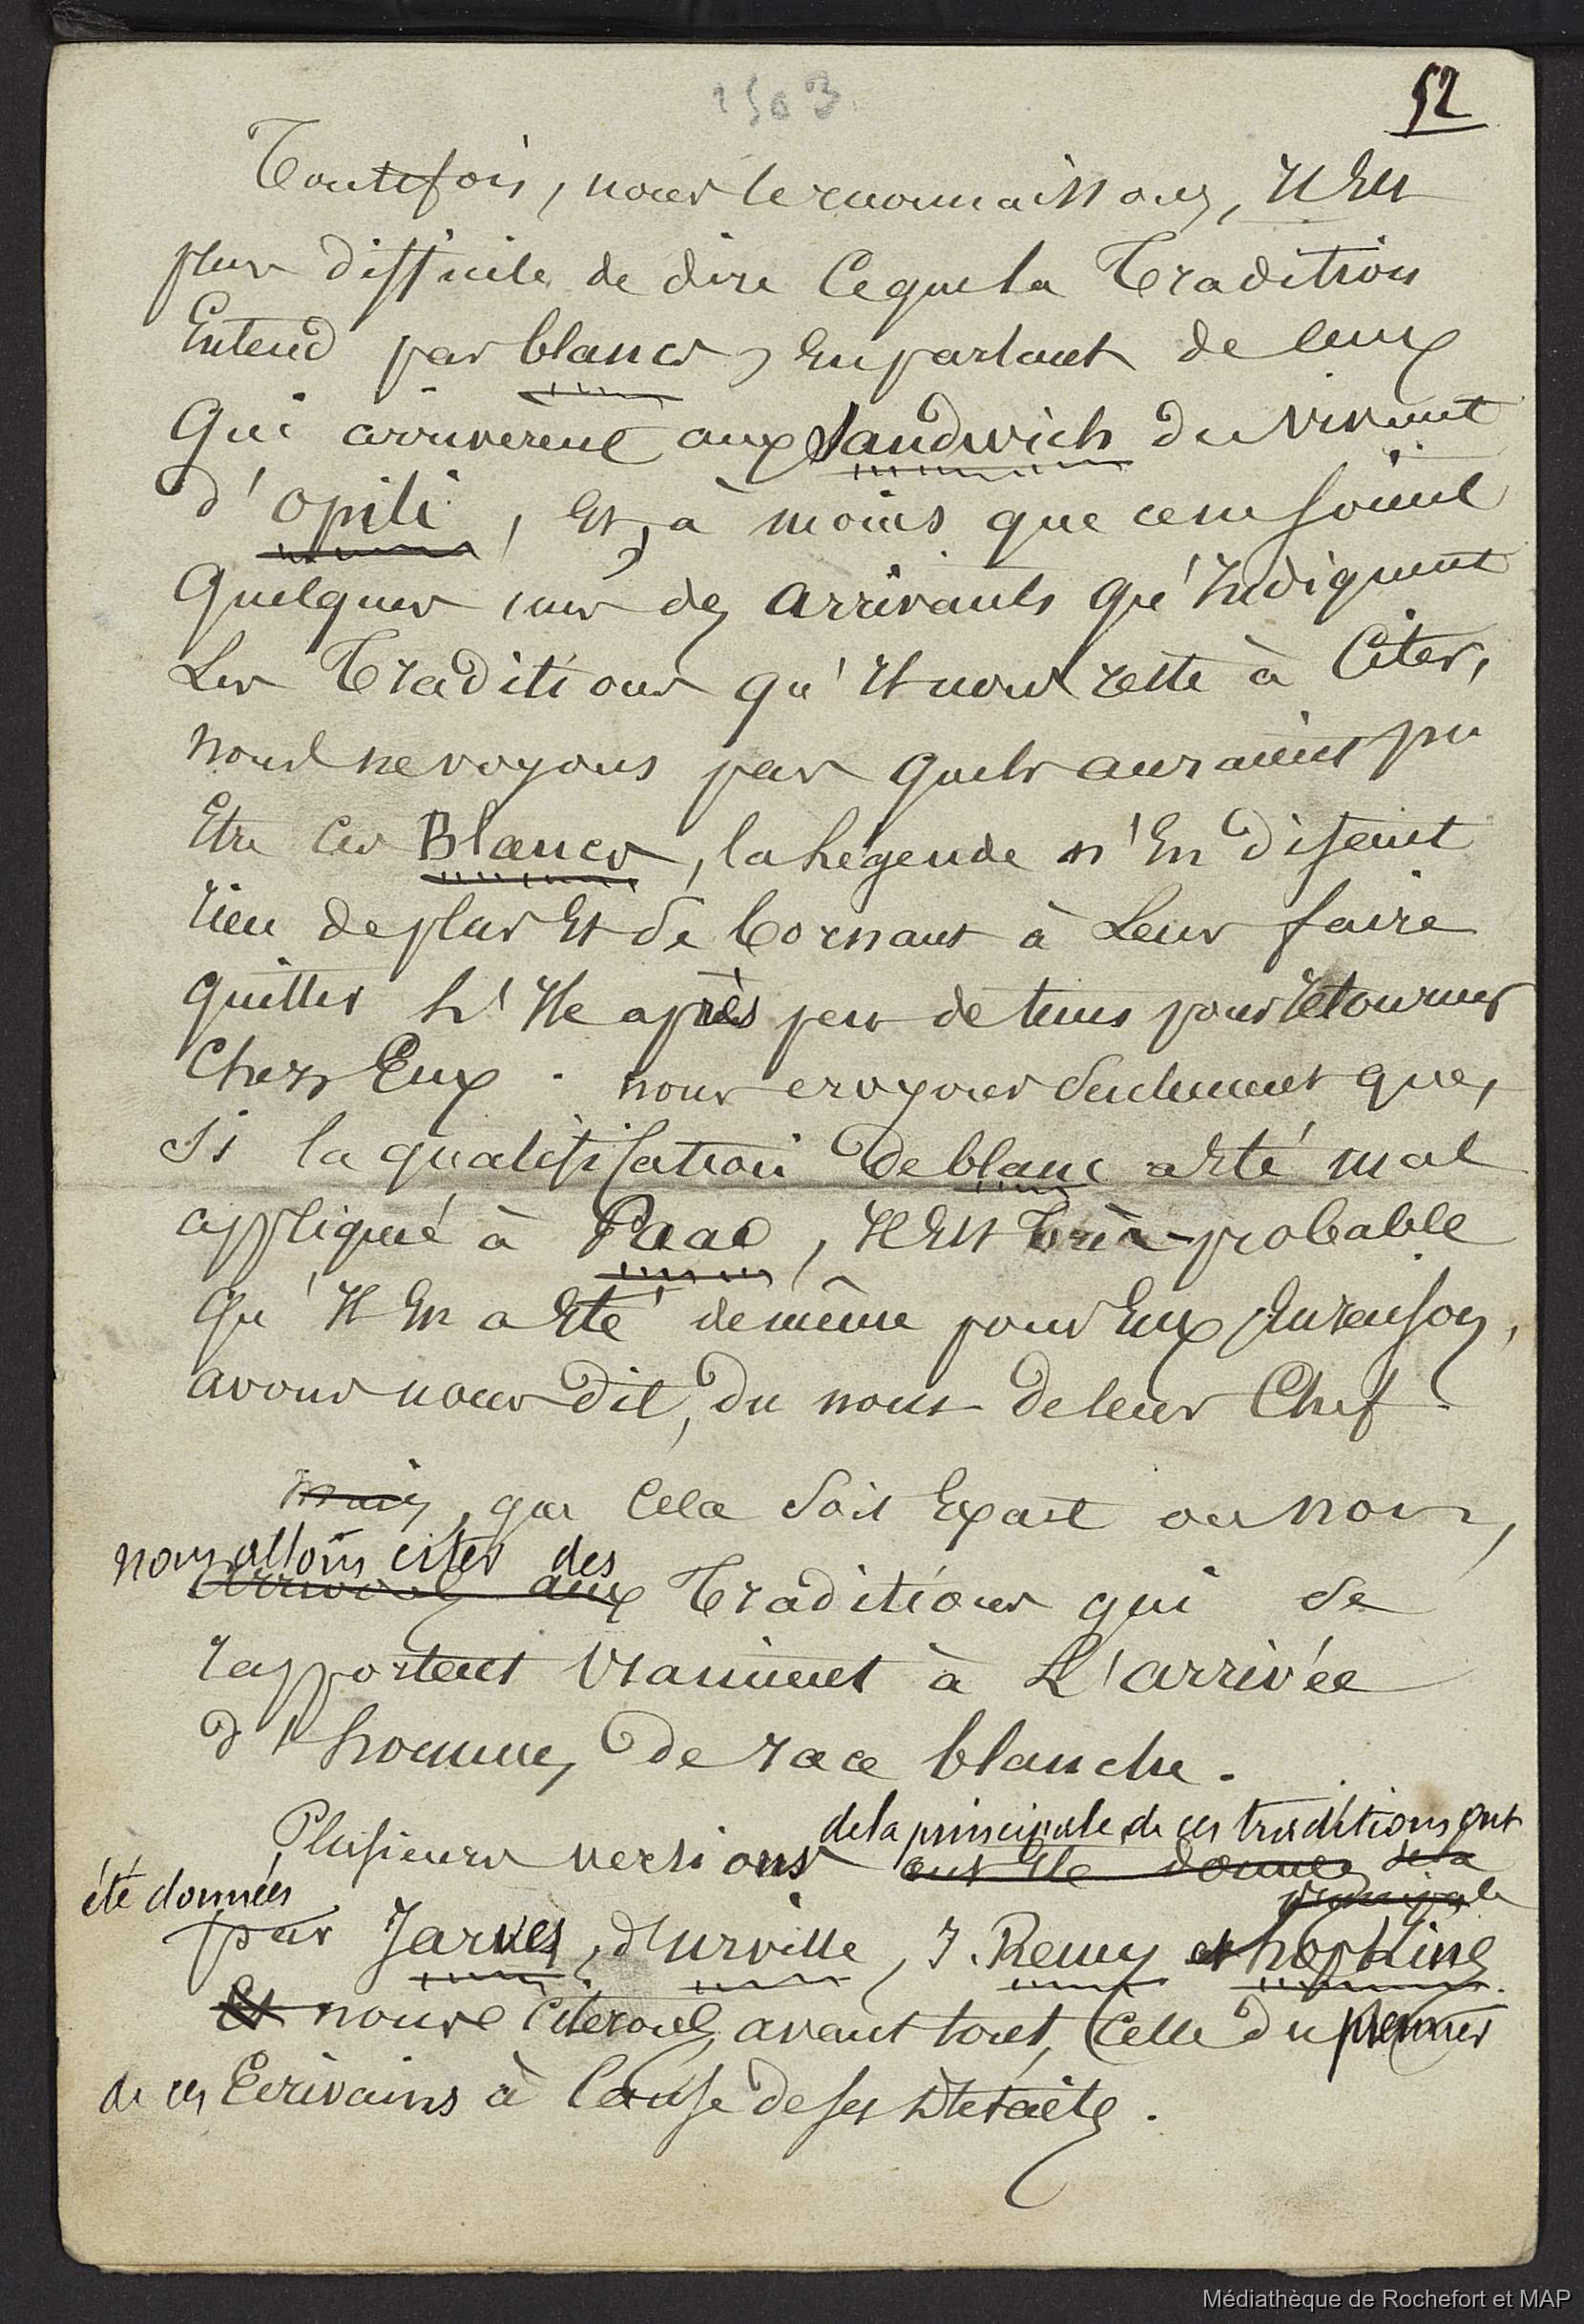 1503
52
Toutefois, nous le reconnaissons, Il Est
plus difficile de dire Ce que la Tradition
Entend par blancs, En parlant de Ceux
Qui arrivèrent aux Sandwich du vivant
d'opili, Et, à moins que ce ne soient
Quelques uns des arrivants qu'Indiquent
Les Traditions qu'Il nous reste à Citer,
nous ne voyons pas quels auraient pu
Etre Ces Blancs, la Légende n'En disant
rien de plus Et se bornant à Leur faire
quitter L'Ile après peu de tems pour retourner
Chez Eux. nous croyons seulement que,
si la qualification de blanc a Eté mal
appliqué à Paao, Il Est très-probable
qu'Il En a Eté de même pour Eux En raison,
avons nous dit, du nom de leur Chef.
mais, que Cela soit Exact ou non,
nous allons citer des
arrivons aux Traditions qui se
rapportent vraiment à L'arrivée
d'hommes de race blanche.
de la principale de ces traditions ont
Plusieurs versions ont Eté données de la
principale
été données
par Jarves, d'urville, J. Remy et hopkins.
Et nous Citerons, avant tout, Celle du premier
de ces Ecrivains à Cause de ses Détails.
Médiathèque de Rochefort et MAP